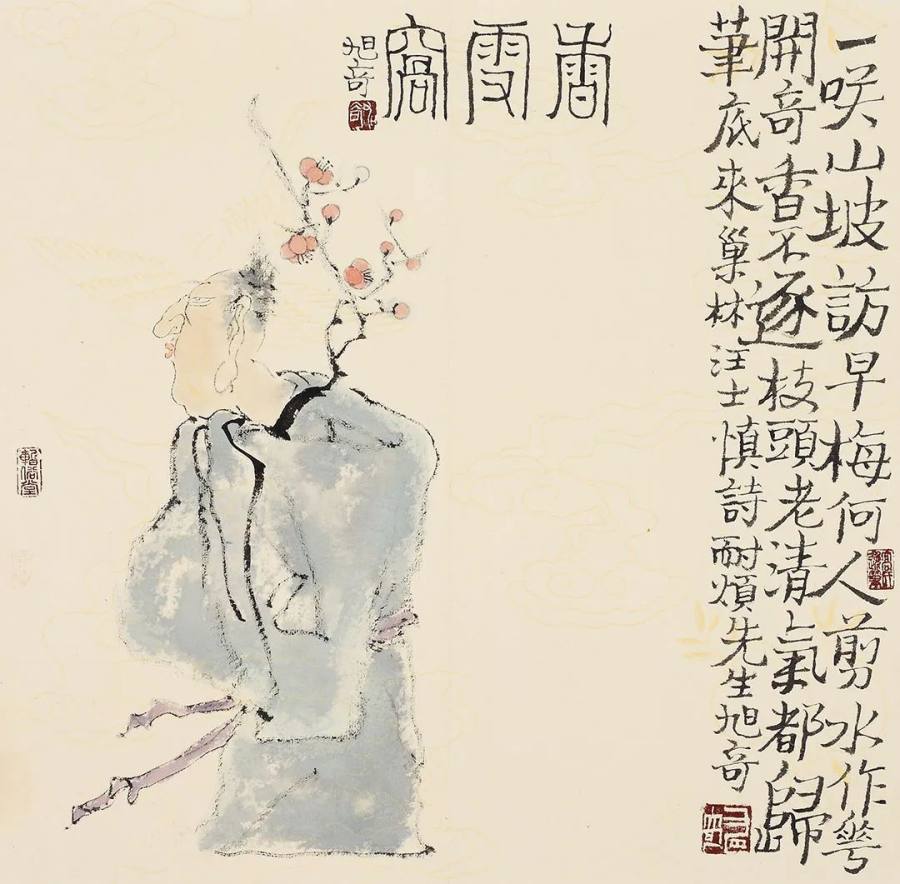 一咲山坡訪早梅何人剪水作華
開奇香不逐枝頭老清氣都歸
筆底來巢林汪士慎詩耐煩先生旭奇
香雪窩
旭奇
暫借堂